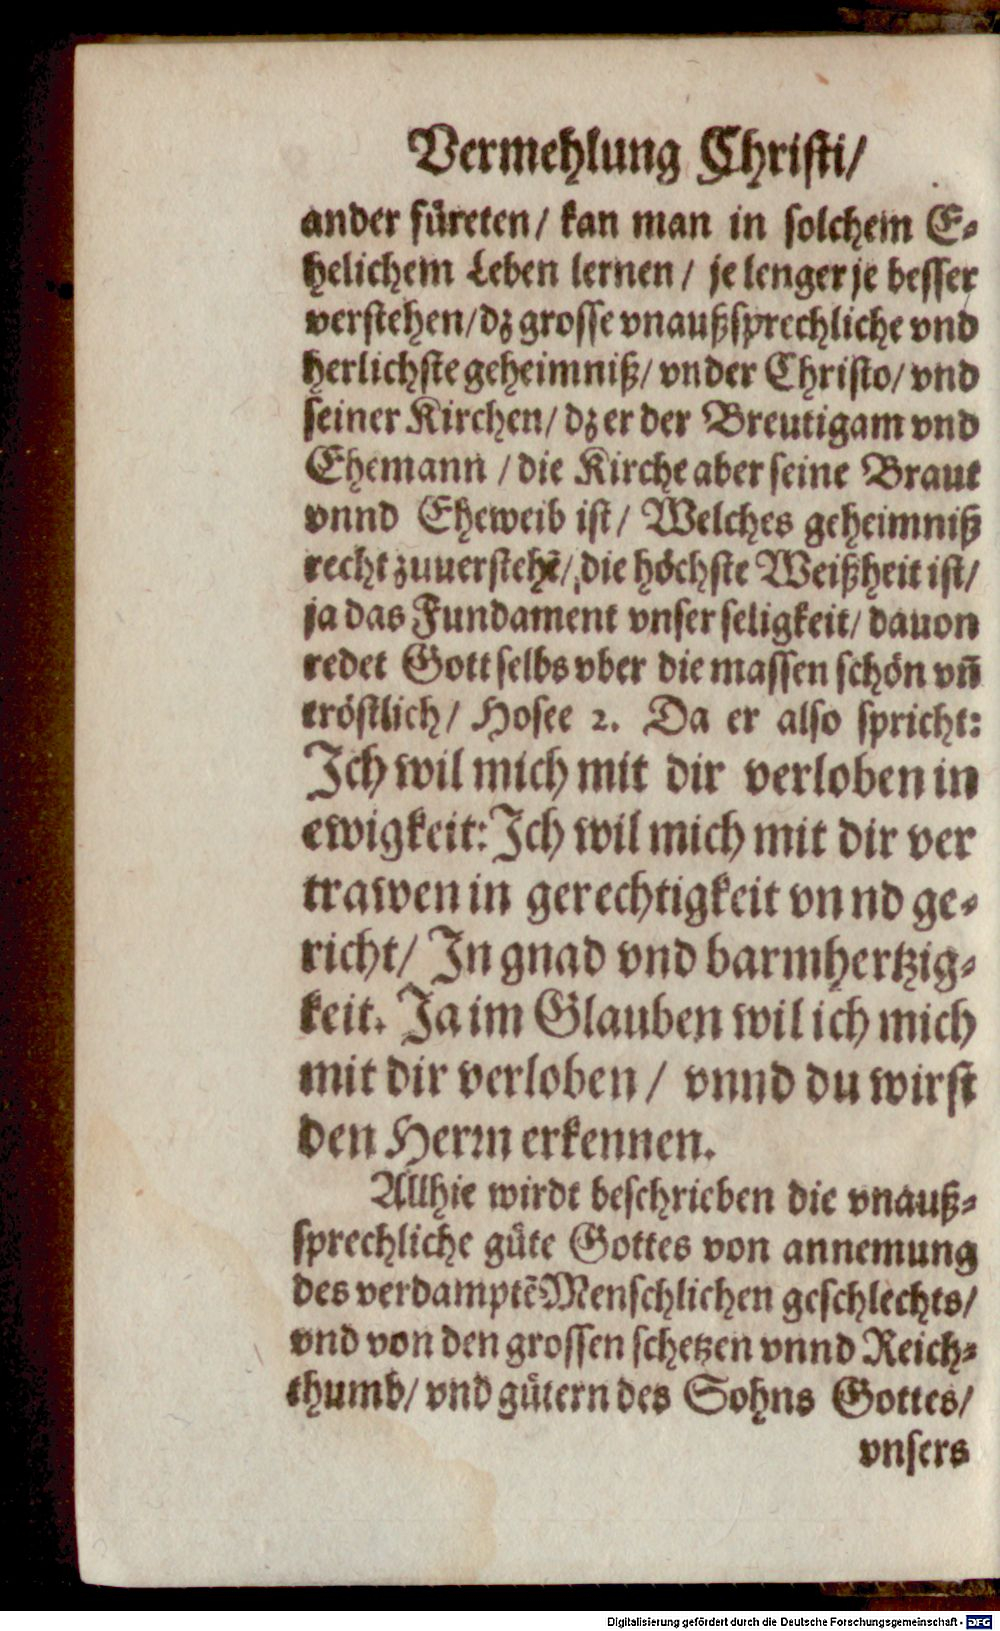 Vermehlung Christi/
ander füreten/ kan man in solchem E-
helichem Leben lernen/ je lenger je besser
verstehen/dz grosse vnaußsprechliche vnd
herlichste geheimniß/ vnder Christo/ vnd
seiner Kirchen/ dz er der Breutigam vnd
Ehemann / die Kirche aber seine Braut
vnnd Eheweib ist/ Welches geheimniß
recht zuuerstehẽ/ die höchste Weißheit ist/
ja das Fundament vnser seligkeit/ dauon
redet Gott selbs vber die massen schön vñ
tröstlich/ Hosee 2. Da er also spricht:
Ich wil mich mit dir verloben in
ewigkeit: Ich wil mich mit dir ver
trawen in gerechtigkeit vnnd ge-
richt/ In gnad vnd barmhertzig-
keit. Ja im Glauben wil ich mich
mit dir verloben/ vnnd du wirst
den Herrn erkennen.
Allhie wirdt beschrieben die vnauß-
sprechliche güte Gottes von annemung
des verdamptẽ Menschlichen geschlechts/
vnd von den grossen schetzen vnnd Reich-
thumb/ vnd gütern des Sohns Gottes/
vnsers
Digitalisierung gefördert durch die Deutsche Forschungsgemeinschaft - DFG